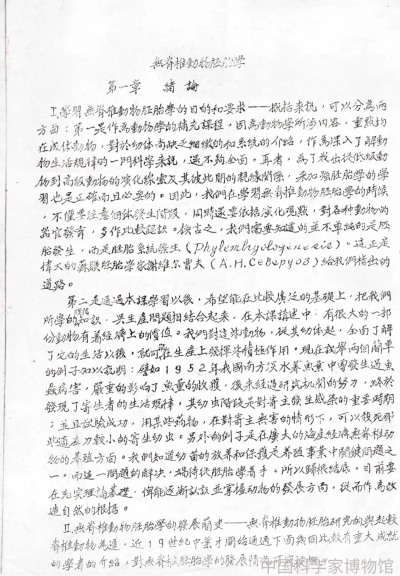 無脊椎動物胚胎學
第一章 緒論
I.學習無脊椎動物胚胎學的目的和要求——概括來說,可以分為兩
方面:第一是作為動物學的補充課程,因為動物學所涉內容,重點均
在成體動物,對於幼體尚缺乏細緻的和系統的介紹,作為深入了解動
物生活規律的一門科學來說,還不夠全面,再者,為了找出從低級動
物到高級動物的演化線索及其彼此間的親緣關係,未加強胚胎學的學
習也是正確而且必要的。因此,我們在學習無脊椎動物胚胎學的時候
,不僅要注意個體發生階段,同時還要依據演化觀點,對各種動物的
器官發育,多作比較認識。換言之,我們需要知道的並不單純的是胚
胎發生,而是胚胎系統發生(Phylembryologenesis)。這正是
偉大的蘇聯胚胎學家謝維爾曹夫(A.H.Северцов)給我們指出的
道路。
第二是通過本課學習以後,希望能在比較廣泛的基礎上,把我們
所學的知識,與生產問題相結合起來,在本課講述中,有很大的一部
份動物有着經濟上的價值。我們對這些動物,從其幼体起,全面了解
了它的生活以後,就可能在生產上發揮其積極作用。現在試舉兩個簡單
的例子加以說明:譬如1952年我國南方淡水養魚業中曾發生過魚
蝨病害,嚴重的影响了魚量的收穫,後來經過研究機關的努力,終於
發現了寄生者的生活規律,其幼虫階段是對寄主發生感染的重要時期
;並且試驗成功,用某些药物,在對寄主無害的情形下,可以殺死那
些適應力較小的寄生幼虫。另外的例子是在廣大的海産經濟無脊椎動
物的養殖方面。我們知道幼苗的放養和保護是養殖事業中關鍵問題之
一,而這一問題的解決,端待從胚胎學着手。所以歸根結底,目前要
在充实理論基礎,俾能逐漸認識並掌握动物的發展方向,從而作為改
造自然的根据。
II.無脊椎動物胚胎學的發展簡史——無脊椎動物胚胎研究的興起較
脊椎動物為遲,近19世紀中葉才開始通過下面幾個比較有重大成就
的學者的介紹,對無脊椎胚胎學的發展情況
中国科学家博物馆